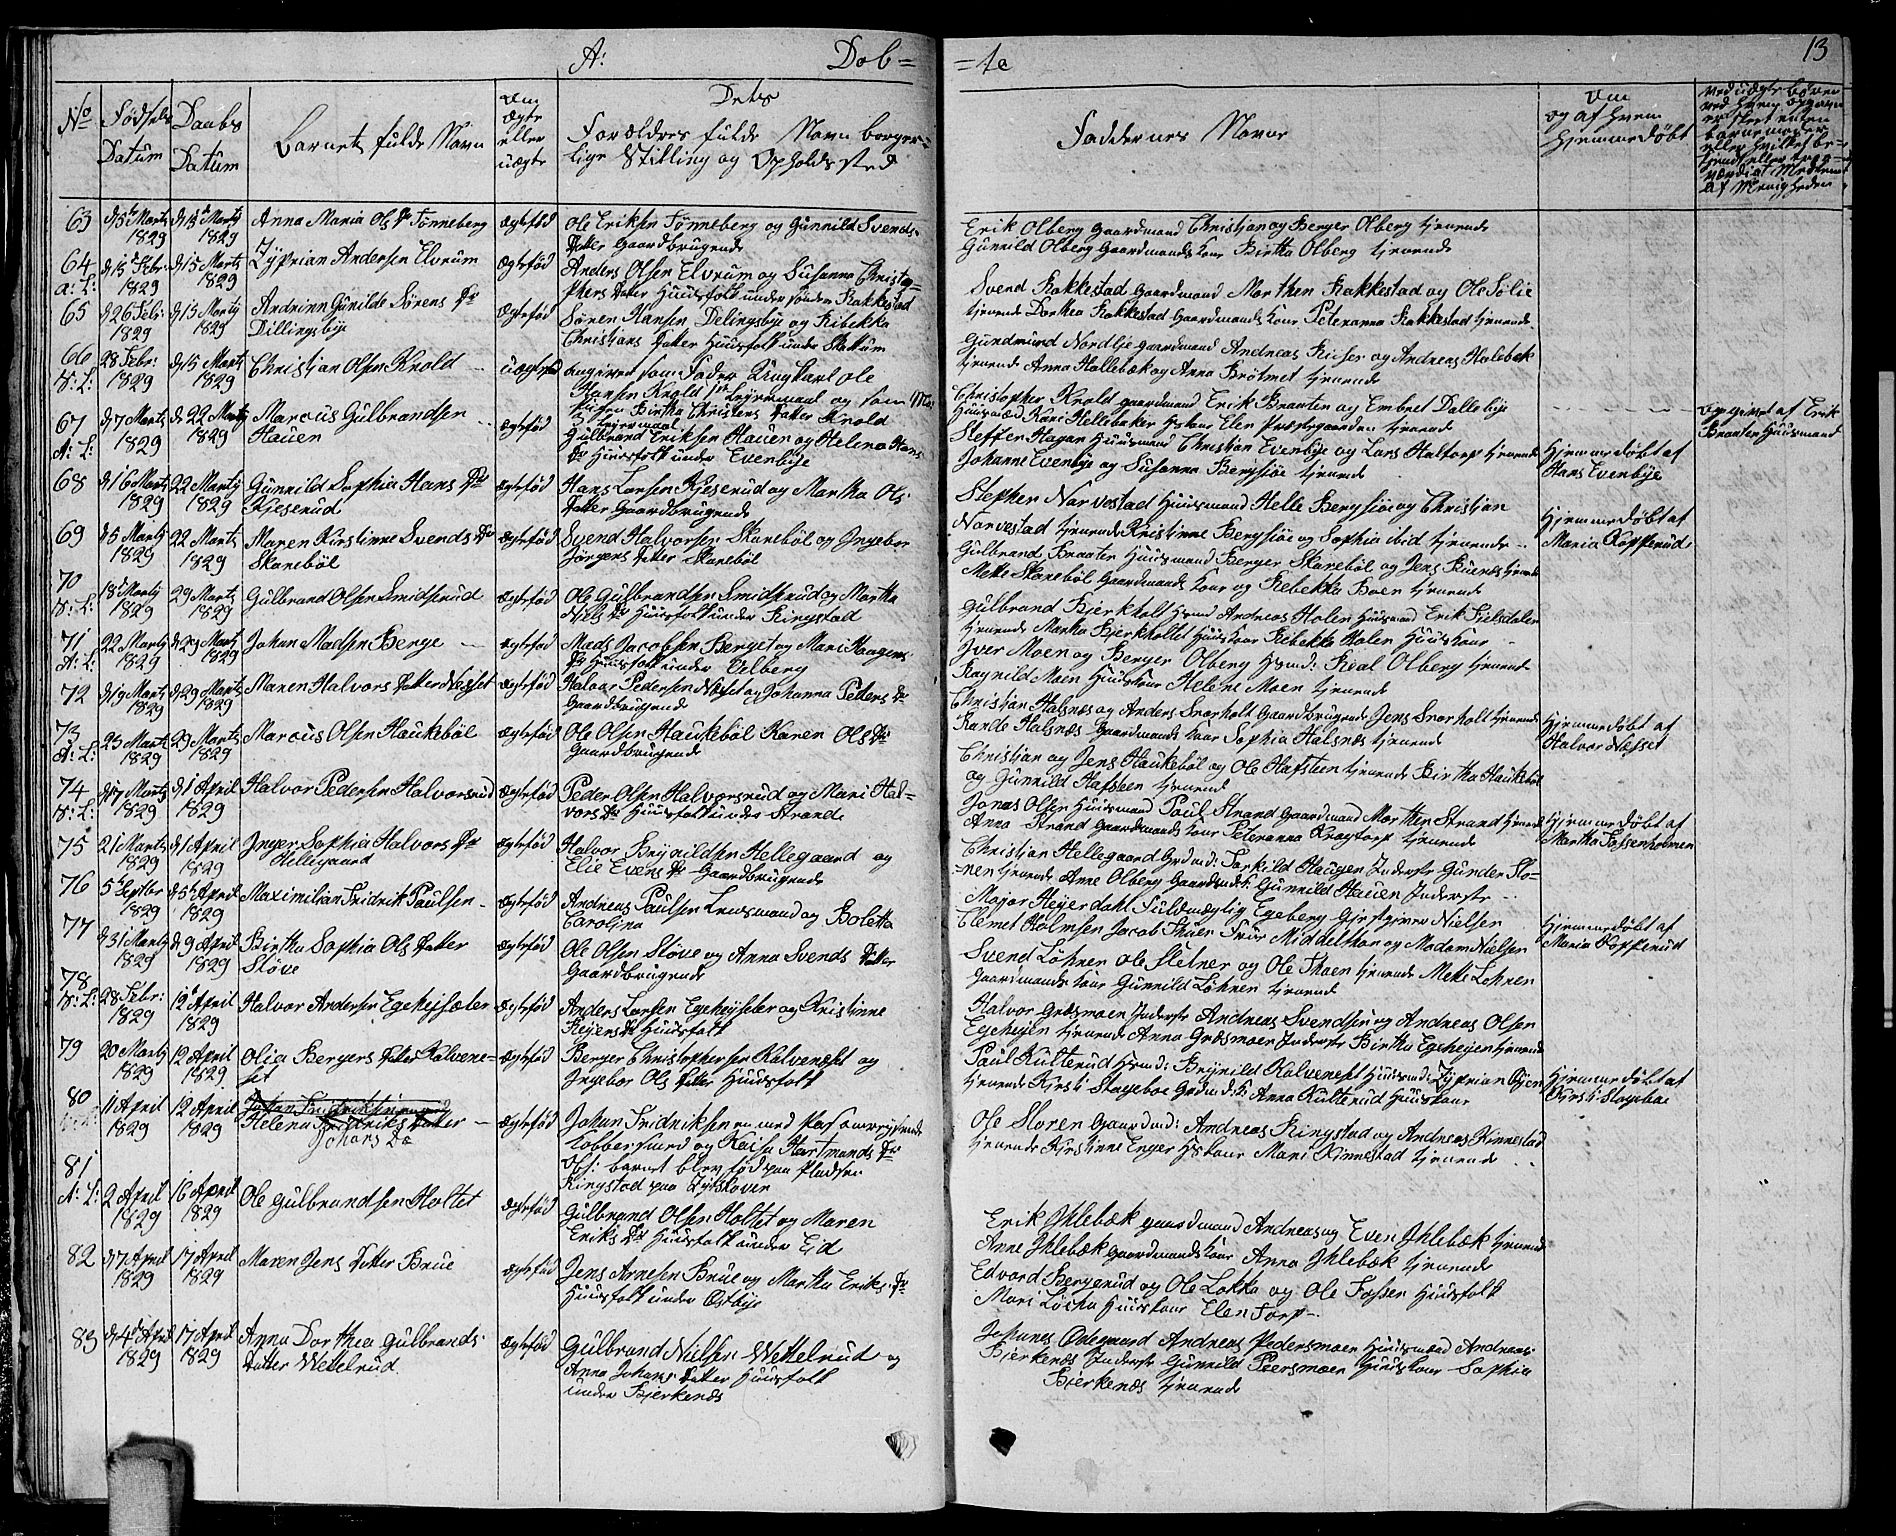 A:
Døb=
=te
13
No
Fødsels
Datum
Daabs
Datum
Barnets fulde Navn
Om
Ægte
eller
uægte
Dets
Forældres fulde Navn borger=
lige Stilling og Opholdssted
Faddernes Navne
Om
og af hvem
hjemmedøbt
63
1829
1829
Anna Maria Ols Dr Tønneberg
Ægtefød
Ole Eriksen Tønneberg og Gunnild Svends
Datter Gaardbrugende
Erik Olberg Gaardmand Christian og Berger Olberg tjenende
Gunnild Olberg Gaardmands Kone Birthe Olberg tjenende
64
A: L:
d 15 Febr:
1829
d 15 Marty
1829
Zyprian Andersen Elvrum
Ægtefød
Anders Olsen Elvrum og Susanna Christo=
phers Datter Huusfolk under søndre Rakkestad
Svend Rakkestad Gaardmand Marthen Rakkestad og Ole Sølie
tjenende Dorthea Rakkestad Gaardmands Kone Peteranna Rakkestad tjenende
65
d 26 Febr:
1829
d 15 Marty
1829
Andrinn Gunilde Sørens Dr
Dillingsbye
Ægtefød
Søren Hansen Delingsbye og Ribekka
Christians Datter Huusfolk under Skattum
Gundmund Nordbye gaardmand Andreas Riiser og Andreas Holebek
tjenende Anna Hollebæk og Anna Brótmet tjenende
66
V: L:
28 Febr:
1829
d 15 Marty
1829
Christian Olsen Krold
uægtefød
angiven som Fader Ungkarl Ole
Hansen Krold 1ste Leyermaal og som Mo
deren Birthe Christens Datter Krold
Leyermaal
Christopher Krold gaardmand Erik Braaten og Embret Dallebye
Huusmænd Kari Hellebæker Kone Elen Præstegaarden tjenende
opgivet af Erik
Braaten Huusmand
67
A: L:
d 7 Marty
1829
d 22 Marty
1829
Marcus Gulbrandsen
Hauen
Ægtefød
Gulbrand Eriksen Hauen og Helena Hans
Dr Huusfolk under Evenbye
Steffen Hagen Huusmand Christian Evenbye og Lars Haltorp tjenende
Johanne Evenbye og Susanna Bergsjøe tjenende
Hjemmedøbt af
Hans Evenbye
68
d 16 Marty
1829
22 Marty
1829
Gunnild Sophia Hans Dr
Kjeserud
Ægtefød
Hans Larsen Kjeserud og Martha Ols
Datter Gaardbrugende
Stephen Narvestad Huusmand Helle Bergsjøe og Christian
Narvestad tjenende Kristinne Bergsjøe og Sophia ibid tjenende
Hjemmedøbt af
Maria Kopperud
69
d 5 Marty
1829
22 Marty
1829
Maren Kirstinne Svends Dr
Skarebøl
Ægtefød
Svend Halvorsen Skarebøl og Ingebor
Jørgens Datter Skarebøl
Gulbrand Braaten Huusmand Berger Skarebøl og Jens Buenæs tjenende
Mette Skarebøl Gaardmands Kone og Rebekka Boen tjenende
70
V: L:
18 Marty
1829
29 Marty
1829
Gulbrand Olsen Smidsrud
Ægtefød
Ole Gulbrandsen Smidsrud og Martha
Nils Dr Huusfolk under Ringstad
Gulbrand Bjerkholt Hsmd Andreas Holen Huusmd Erik Fjelsdalen
tjenende Martha Bjerkholtet Huuskone Ribekka Holen Huuskone
71
A: L:
22 Marty
1829
d 29 Marty
1829
Johan Madsen Berge
Ægtefød
Mads Jacobsen Berget og Mari Haagens
Dr Huusfolk under Velberg
Iver Moen og Berger Olberg Hsmd: Roal Olberg tjenende
Ragnild Moen Huuskone Helene Moen tjenende
72
d 19 Marty
1829
d 29 Marty
1829
Maren Halvors Datter Nesset
Ægtefød
Halvor Pedersen Næset og Johanna Peders Dr
Gaardbrugende
Christian Halsnæs og Anders Snorholt Gaardbrugende Jens Snorholt tjenende
Rande Halsnæs Gaardmands Kone Sophia Halsnæs tjenende
Hjemmedøbt af
Halvor Nesset
73
A: L:
25 Marty
1829
29 Marty
1829
Marcus Olsen Haukebøl
Ægtefød
Ole Olsen Haukebøl Karen Ols Dr
Gaardbrugende
Christian og Jens Haukebøl og Ole Hafsteen tjenende Birthe Haukebøl
og Gunnild Hafsteen tjenend
74
V: L:
d 17 Marty
1829
d 1 April
1829
Halvor Pedersen Halvorsrud
Ægtefød
Peder Olsen Halvorsrud og Mari Hal=
vors Dr Huusfolk under Strande
Jonas Olsen Huusmand Paul Strand Gaardmand Morthen Strand tjenende
Anna Strand Gaardmands Kone Peteranna Krogtorp tjenende
Hjemmedøbt af
Martha Fossenholmen
75
21 Marty
1829
d 1 April
1829
Inger Sophia Halvors Dr
Hellegaard
Ægtefød
Halvor Brynildsen Hellegaard og
Elie Evens Dr Gaardbrugende
Christian Hellegaard Grdmd: Torkild Haugen Inderst Gunder Slo=
=nen tjenende Anne Olberg Gaardmds K: Gunnild Hauen Inderste
76
1829
d 5 April
1829
Maximilian Fridrik Paulsen
Ægtefød
Andreas Paulsen Lensmand og Boletta
Carolina
Major Heyerdahl Fuldmægtig Egeberg Gjestgiver Nielsen
Clemet Holmsen Jacob Thuen Frue Middelthon og Madam Nielsen
Hjemmedøbt af
Maria Kopperud
77
d 31 Marty
1829
d 9 April
1829
Birthe Sophia Ols Datter
Sløve
Ægtefød
Ole Olsen Sløve og Anna Svends Datter
Gaardbrugende
Svend Løhren Ole Sletner og Ole Thoen tjenende Mette Løhren
Gaardmands Kone Gunnild Løhren tjenend
78
V: L:
28 Febr:
1829
12 April
1829
Halvor Andersen Egehejsæter
Ægtefød
Anders Larsen Egeheyseter og Kristinne
Reyers Dr Huusfolk
Halvor Græsmoen Inderst Andreas Svendsen og Andreas Olsen
Egeheyen tjenende Anna Græsmoen Inderst Birthe Egeheyen tjenende
79
20 Marty
1829
12 April
1829
Olia Bergers Datter Kalvene=
set
Ægtefød
Berger Christophersen Kalvenæset og
Ingebor Ols Datter Huusfolk
Paul Kulterud Hsmd: Brynild Kalveneset Huusmd: Zyprian Øjen
tjenende Kirsti Slogeboe Grdmd: K: Anna Kulterud Huuskone
Hjemmedøbt af
Kirsti Slogeboe
80
11 April
1829
12 April
1829
Helena Fredriks Datter
Johans Dr
Ægtefød
Johan Fridriksen en med Pas omreysende
Kobbersmed og Kaisa Hartmands Dr
Obs: barnet blev fød paa Pladsen
Ringstad paa Tydskoven
Ole Storen Gaardmd: Andreas Ringstad og Andreas Kinnestad
tjenende Kirstine Enger Hskone Mari Kinnestad tjenende
81
A: L:
2 April
1829
16 April
1829
Ole Gulbrandsen Holtet
Ægtefød
Gulbrand Olsen Holtet og Maren
Eriks Dr Huusfolk under Eid
Erik Ihlebæk gaardmand Andreas og Even Ihlebæk tjenende
Anne Ihlebæk Gaardmands Kone Anna Ihlebæk tjenende
82
d 7 April
1829
17 April
1829
Maren Jens Datter Brue
Ægtefød
Jens Arnesen Brue og Martha Eriks Dr
Huusfolk under Østbye
Edvard Bergerud og Ole Løkka og Ole Fossen Huusfolk
Mari Løcka Huuskone Elen Torp
83
d 4 April
1829
17 April
1829
Anna Dorthea Gulbrands
Datter Wettelrud
Ægtefød
Gulbrand Nielsen Wettelrud og
Anna Johans Datter Huusfolk
under Bjerkenæs
Johanes Ødegaard Andreas Pedersmoen Huusmænd Andreas
Bjerkenæs Inderst Gunnild Peersmoen Huuskone Sophia
Bjerkenæs tjenende